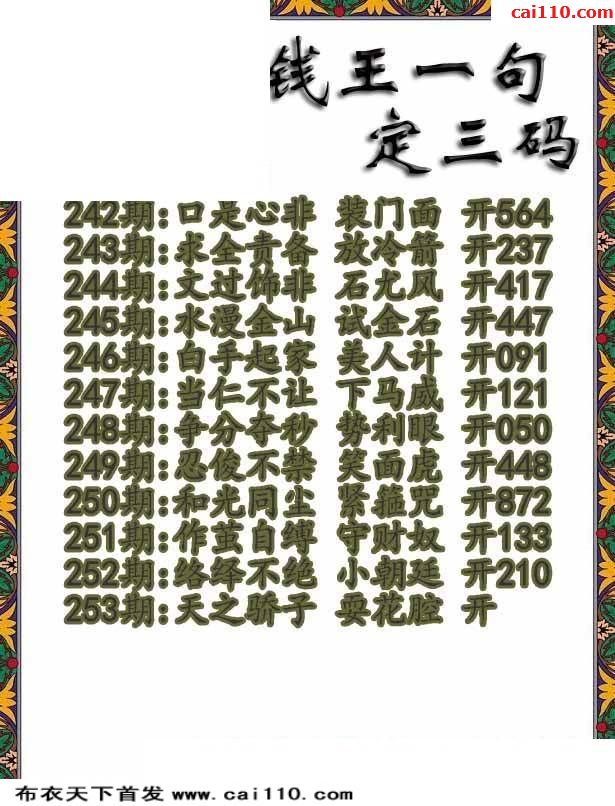 cai110.com
钱王一句
定三码
242期:口是心非 装门面 开564
243期:求全责备 放冷箭 开237
244期:文过饰非 石尤风 开417
245期:水漫金山 试金石 开447
246期:白手起家 美人计 开091
247期:当仁不让 下马威 开121
248期:争分夺秒 势利眼 开050
249期:忍俊不禁 笑面虎 开448
250期:和光同尘 紧箍咒 开872
251期:作茧自缚 守财奴 开133
252期:络绎不绝 小朝廷 开210
253期:天之骄子 耍花腔 开
布衣天下首发 www.cai110.com